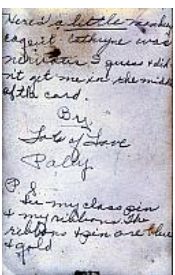 Here's a little monkey
cage it. Cathryne was
nervous I guess & did-
n't get me in the middle
of the card.
By
Lots of Love
Patsy
P.S.
See my class pin
& my ribbons. The
ribbons & pin are blue
& gold